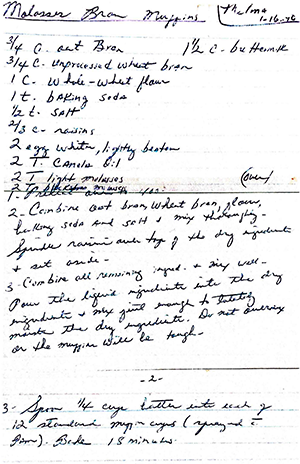 Molasses Bran Muffins
Thelma
1-16-96
3/4 C. oat Bran
1 1/2 c. buttermilk
3/4 C. unprocessed wheat bran
1 C. Whole-wheat flour
1 t. baking soda
1/2 t. salt
2/3 c. raisins
2 egg whites, lightly beaten
2 T. Canola Oil
2 T. light molasses
(over)
1. Preheat oven to
2- Combine oat bran, wheat bran, flour,
baking soda and salt & mix thoroughly-
Sprinkle raisins over top of the dry ingredients
& set aside-
3- Combine all remaining ingred. & mix well-
Pour the liquid ingredients into the dry
ingredients & mix just enough to totally
moisten the dry ingredients. Do not overmix
or the muffins will be tough-
-2-
3- Spoon 1/4 cup batter into each of
12 standard muffin cups (sprayed c̄
Pam). Bake 15 minutes.